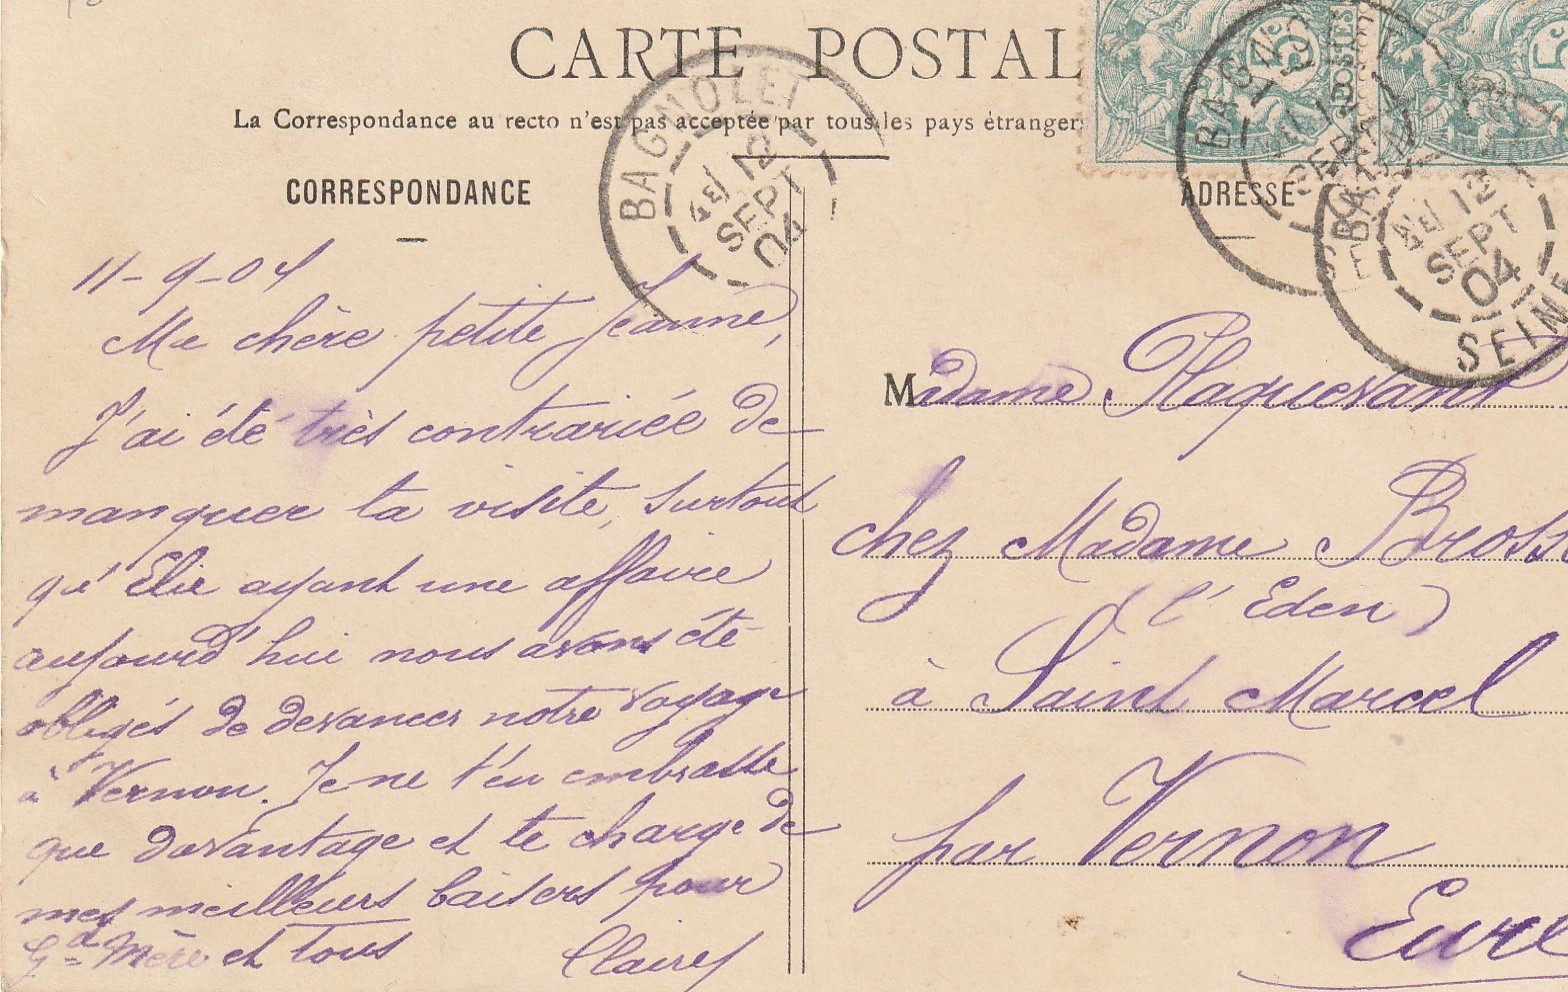 CARTE POSTAL
La Correspondance au recto n'est pas acceptée par tous les pays étrangers
CORRESPONDANCE
11-9-04
Ma chère petite Jeanne,
J'ai été très contrariée de
manquer ta visite, surtout
qu'Elie ayant une affaire
aujourd'hui nous avons été
obligés de devancer notre voyage
à Vernon. Je ne t'en embrasse
que davantage et te charge de
mes meilleurs baisers pour
Gd Mère et tous
Claire
BAGNOLET
12
SEPT
04
5c
POSTES
5c
BAGNOLET
SEPT
BAGNOLET
12
SEPT
04
SEINE
ADRESSE
Madame Plaquevant
chez Madame Bross
(l'Eden)
à Saint Marcel
par Vernon
Eure